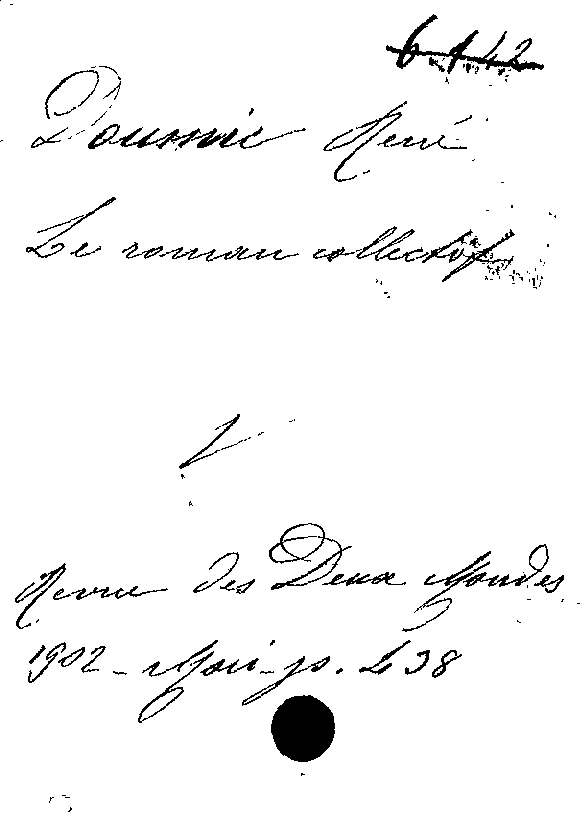 6142
Doumic René
Le roman collectif
Revue des Deux Mondes
1902 - Mai - p. 438